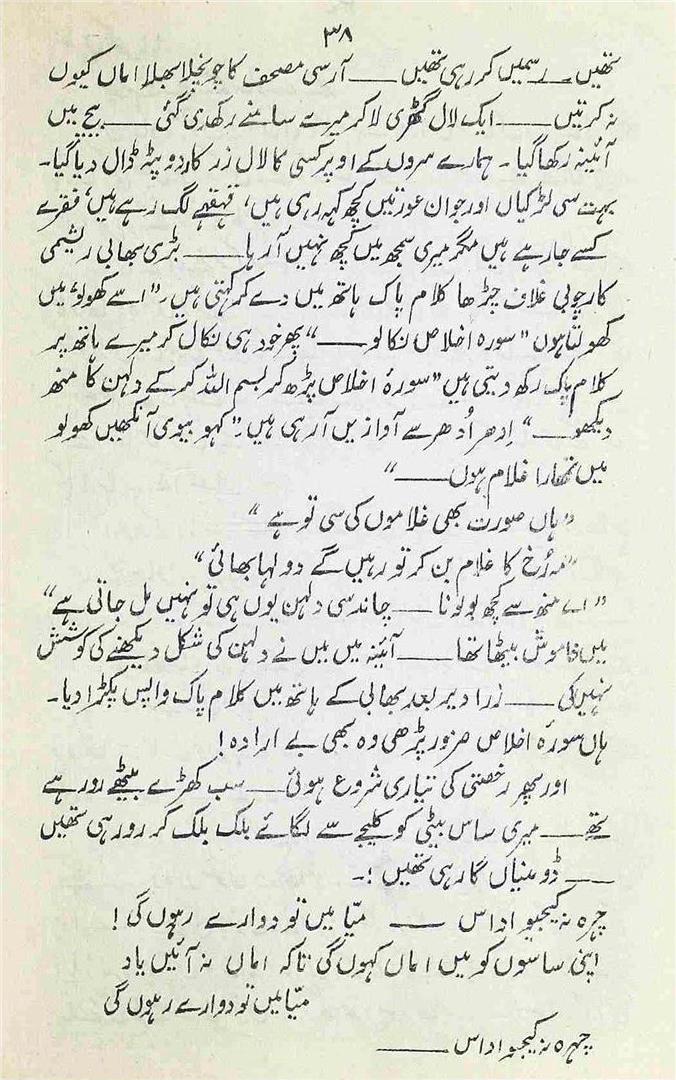 ۳۸
تھیں ــــ رسمیں کر رہی تھیں ــــ آرسی مصحف کا چونچلا بھلا اماں کیوں
نہ کرتیں ــــ ایک لال گٹھری لا کر میرے سامنے رکھ دی گئی ــــ بیچ میں
آئینہ رکھا گیا ۔ ہمارے سروں کے اوپر کسی کا لال زر کار دوپٹہ ڈال دیا گیا ۔
بہت سی لڑکیاں اور جوان عورتیں کچھ کہہ رہی ہیں، قہقہے لگ رہے ہیں، فقرے
کسے جا رہے ہیں مگر میری سمجھ میں کچھ نہیں آ رہا ــــ بڑی بھابی ریشمی
کارچوبی غلاف چڑھا کلام پاک ہاتھ میں دے کر کہتی ہیں ۔ "اسے کھولو" میں
کھولتا ہوں "سورہ اخلاص نکالو ــــ" پھر خود ہی نکال کر میرے ہاتھ پر
کلام پاک رکھ دیتی ہیں "سورۂ اخلاص پڑھ کر بسم اللہ کر کے دلہن کا منھ
دیکھو ــــ" اِدھر اُدھر سے آوازیں آ رہی ہیں ۔ "کہو بیوی آنکھیں کھولو
میں تمھارا غلام ہوں ــــ"
"ہاں صورت بھی غلاموں کی سی تو ہے"
"مہ رُخ کا غلام بن کر تو رہیں گے دولہا بھائی"
"اے منھ سے کچھ بولو نا ــــ چاند سی دلہن یوں ہی تو نہیں مل جاتی ہے"
میں خاموش بیٹھا تھا ــــ آئینہ میں میں نے دلہن کی شکل دیکھنے کی کوشش
نہیں کی ــــ ذرا دیر بعد بھابی کے ہاتھ میں کلام پاک واپس پکڑا دیا ۔
ہاں سورۂ اخلاص ضرور پڑھی وہ بھی بے ارادہ !
اور پھر رخصتی کی تیاری شروع ہوئی ــــ سب کھڑے بیٹھے رو رہے
تھے ــــ میری ساس بیٹی کو کلیجے سے لگائے بلک بلک کر رو رہی تھیں
ــــ ڈومنیاں گا رہی تھیں !۔
چہرہ نہ کیجیو اداس ــــ میّا میں تو دوارے رہوں گی !
اپنی ساسوں کو میں اماں کہوں گی تاکہ اماں نہ آئیں یاد
میّا میں تو دوارے رہوں گی
چہرہ نہ کیجیو اداس ــــ